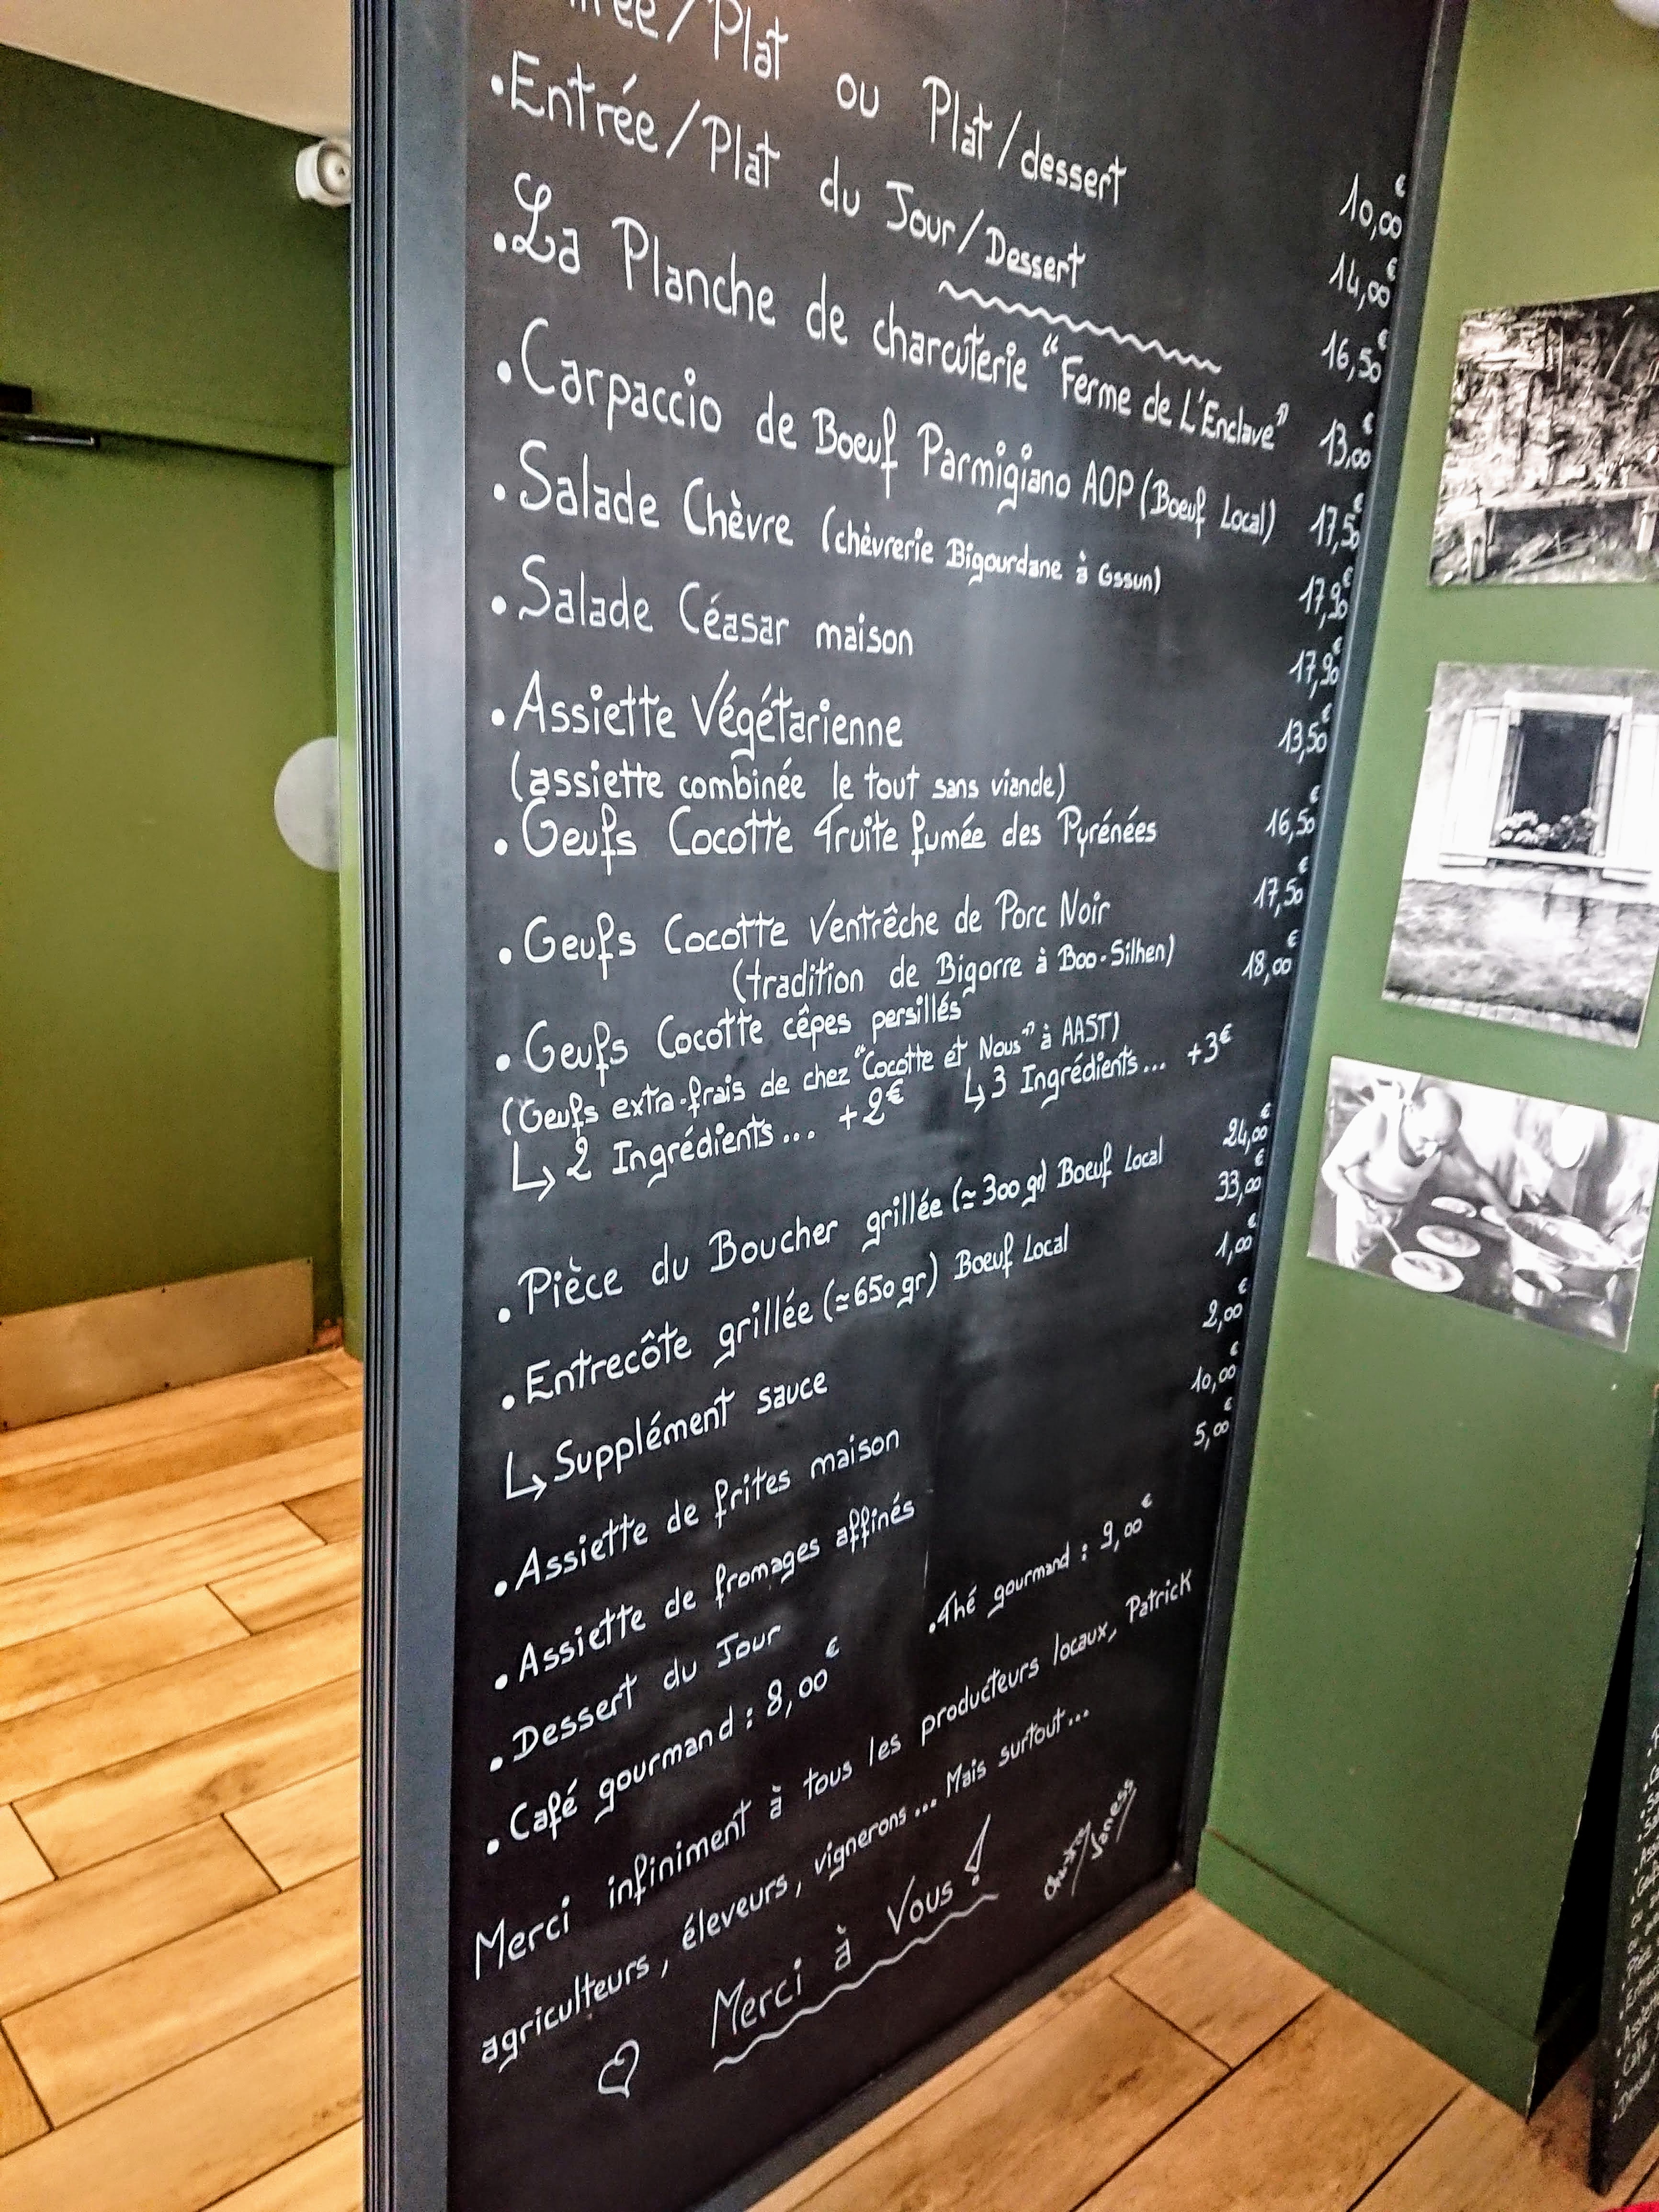 10,00€
rée/Plat ou Plat/dessert 14,00€
• Entrée/Plat du Jour/Dessert 16,50€
• La Planche de charcuterie "Ferme de L'Enclave" 13,00€
• Carpaccio de Boeuf Parmigiano AOP (Boeuf Local) 17,50€
• Salade Chèvre (chèvrerie Bigourdane à Ossun) 17,90€
• Salade Céasar maison 17,90€
• Assiette Végétarienne 13,50€
(assiette combinée le tout sans viande)
• Oeufs Cocotte Truite fumée des Pyrénées 16,50€
• Oeufs Cocotte Ventrêche de Porc Noir 17,50€
(tradition de Bigorre à Boo-Silhen)
• Oeufs Cocotte cêpes persillés 18,00€
(Oeufs extra-frais de chez "Cocotte et Nous" à AAST)
↳ 2 Ingrédients... +2€ ↳ 3 Ingrédients... +3€
• Pièce du Boucher grillée (≃ 300 gr) Boeuf Local 24,00€
• Entrecôte grillée (≃ 650 gr) Boeuf Local 33,00€
↳ Supplément sauce 1,00€
• Assiette de frites maison 2,00€
• Assiette de fromages affinés 10,00€
• Dessert du Jour 5,00€
• Café gourmand : 8,00€ • Thé gourmand : 9,00€
Merci infiniment à tous les producteurs locaux, Patrick
agriculteurs, éleveurs, vignerons... Mais surtout...
Merci à Vous !